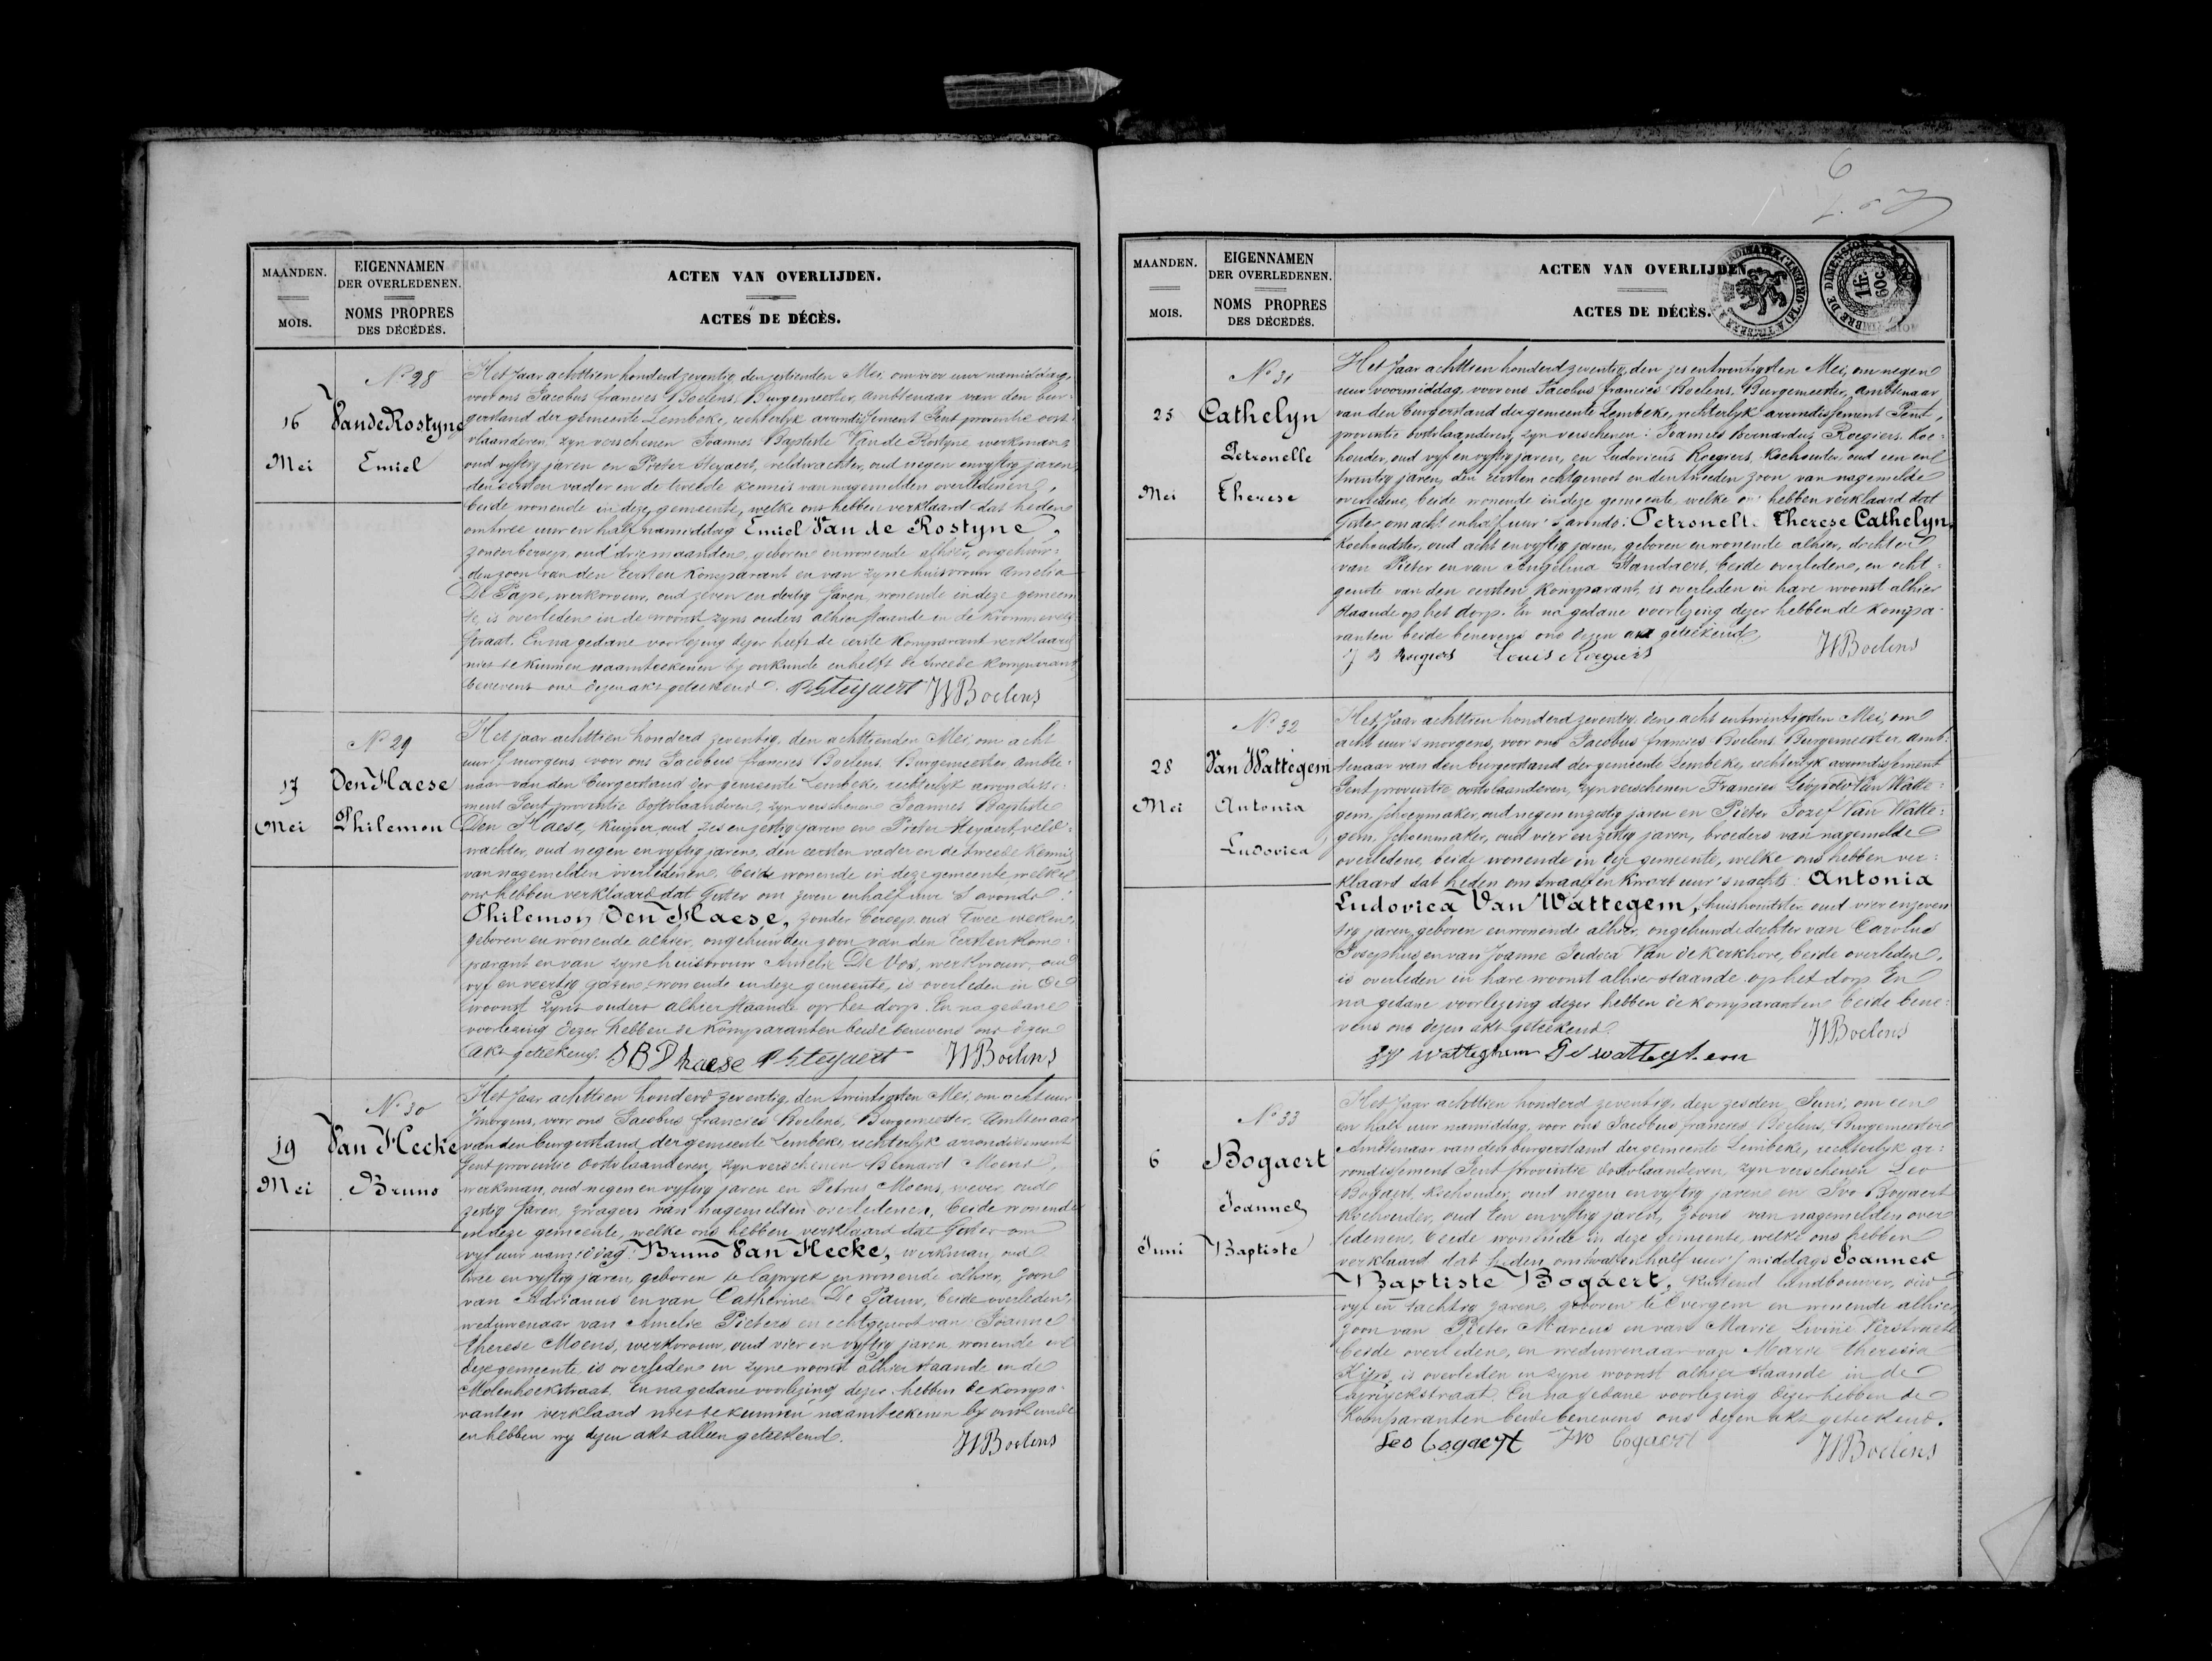 MAANDEN.
MOIS.
EIGENNAMEN
DER OVERLEDENEN.
NOMS PROPRES
DES DÉCÉDÉS.
ACTEN VAN OVERLIJDEN.
ACTES DE DÉCÈS.
No 28
16
Mei
Van de Rostyne
Emiel
Het Jaar achttien honderd zeventig den zestienden Mei, om vier uur namiddag,
voor ons Jacobus francies Boelens, Burgemeester, Ambtenaar van den bur-
gerstand der gemeente Lembeke, rechterlyk arrondissement Gent provintie oost-
vlaanderen, zyn verschenen Joannes Baptiste Van de Rostyne werkman,
oud vyftig jaren en Pieter Steyaert, veldwachter, oud negen en vyftig jaren
den eersten vader en de tweede kennis van nagemelden overledenen,
beide wonende in deze gemeente, welke ons hebben verklaard dat heden
om twee uur en half namiddag Emiel Van de Rostyne,
zonder beroep, oud drie maanden, geboren en wonende alhier, ongehuw-
den zoon van den Eersten Komparant en van zyne huisvrouw Amelia
De Pape, werkvrouw, oud zeven en dertig Jaren, wonende in deze gemeen
te, is overleden in de woonst zyns ouders alhier staande in de
straat. En na gedane voorlezing dezer heeft de eerste Komparant verklaard
niet te kunnen naamteekenen by onkunde en heeft de tweede Komparant
benevens ons dezen akt geteekend. P Steyaert JF Boelens
No 29
17
Mei
Den Haese
Philemon
Het jaar achttien honderd zeventig, den achttienden Mei, om acht
uur 's morgens voor ons Jacobus francies Boelens Burgemeester Ambte-
naar van den burgerstand der gemeente Lembeke, rechterlyk arrondisse-
ment Gent provintie Oostvlaanderen, zyn verschenen Joannes Baptiste
Den Haese, Kuyper oud zes en zestig jaren en Pieter Steyaert, veld-
wachter, oud negen en vyftig jaren, den eersten vader en de tweede Kennis
van nagemelden overledenen, beide wonende in deze gemeente, welke
ons hebben verklaard dat Gister om zeven en half uur 's avonds:
Philemon Den Haese, zonder beroep, oud Twee weken,
geboren en wonende alhier, ongehuwden zoon van den Eersten Kom-
parant en van zyne huisvrouw Amelie De Vos, werkvrouw, oud
vyf en veertig jaren, wonende in deze gemeente, is overleden in de
woonst zyns ouders alhier staande op het dorp. En na gedane
voorlezing dezer hebben de Komparanten beide benevens ons dezen
akt geteekend. J B D haese P Steyaert JF Boelens
No 30
19
Mei
Van Hecke
Bruno
Het Jaar achttien honderd zeventig, den twintigsten Mei, om acht uur
's morgens, voor ons Jacobus francies Boelens, Burgemeester, Ambtenaar
van den burgerstand der gemeente Lembeke, rechterlyk arrondissement
Gent provintie Oostvlaanderen, zyn verschenen Bernard Moens,
werkman, oud negen en vyftig jaren en Petrus Moens, wever, oud
zestig Jaren, zwagers van nagemelden overledenen, beide wonende
in deze gemeente, welke ons hebben verklaard dat Gister om
vyf uur namiddag: Bruno Van Hecke, werkman, oud
twee en vyftig jaren, geboren te Capryck en wonende alhier, zoon
van Adrianus en van Catherine De Pauw, beide overleden,
weduwenaar van Amelie Pieters en echtgenoot van Joanne
Therese Moens, werkvrouw, oud vier en vyftig jaren wonende in
deze gemeente is overleden in zyne woonst alhier staande in de
Molenhoekstraat. En na gedane voorlezing dezer hebben de kompa-
ranten verklaard niet te kunnen naamteekenen by onkunde
en hebben wy dezen akt alleen geteekend. JF Boelens
6
MAANDEN.
MOIS.
EIGENNAMEN
DER OVERLEDENEN.
NOMS PROPRES
DES DÉCÉDÉS.
ACTEN VAN OVERLIJDEN.
ACTES DE DÉCÈS.
TIMBRE DE DIMENSION
1 fr.
60c
No 31
25
Mei
Cathelyn
Petronelle
Therese
Het Jaar achttien honderd zeventig, den zes entwintigsten Mei, om negen
uur voormiddag, voor ons Jacobus francies Boelens, Burgemeester, Ambtenaar
van den burgerstand der gemeente Lembeke, rechterlyk arrondissement Gent,
provintie oostvlaanderen, zyn verschenen: Joannes Bernardus Roegiers Koe-
houder, oud vyf en vyftig jaren, en Ludovicus Roegiers, Koehouder, oud een en
twintig jaren, den eersten echtgenoot en den tweeden zoon van nagemelde
overledene, beide wonende in deze gemeente, welke ons hebben verklaard dat
Gister om acht en half uur 's avonds: Petronelle Therese Cathelyn,
Koehoudster, oud acht en vyftig jaren, geboren en wonende alhier, dochter
van Pieter en van Angelina Standaert, beide overledene, en echt-
genote van den eersten Komparant, is overleden in hare woonst alhier
staande op het dorp. En na gedane voorlezing dezer hebben de kompa-
ranten beide benevens ons dezen akt geteekend.
J B Roegiers Louis Roegiers JF Boelens
No 32
28
Mei
Van Wattegem
Antonia
Ludovica
Het Jaar achttien honderd zeventig, den acht entwintigsten Mei, om
acht uur 's morgens, voor ons Jacobus francies Boelens Burgemeester, Amb-
tenaar van den burgerstand der gemeente Lembeke, rechterlyk arrondissement
Gent provintie oostvlaanderen, zyn verschenen Francies Leopold Van Watte-
gem, schoenmaker, oud negen en zestig jaren en Pieter Jozef Van Watte-
gem, schoenmaker, oud vier en zestig jaren, broeders van nagemelde
overledene, beide wonende in deze gemeente, welke ons hebben ver-
klaard dat heden om twaalf en kwart uur 's nachts: Antonia
Ludovica Van Wattegem, huishoudster oud vier en zeven
tig jaren, geboren en wonende alhier, ongehuwde dochter van Carolus
Josephus en van Joanne Isidora Van de Kerkhove, beide overleden,
is overleden in hare woonst alhier staande op het dorp. En
na gedane voorlezing dezer hebben de komparanten beide bene-
vens ons dezen akt geteekend. JF Boelens
No 33
6
Juni
Bogaert
Joannes
Baptiste
Het Jaar achttien honderd zeventig, den zesden Juni, om een
en half uur namiddag, voor ons Jacobus francies Boelens, Burgemeester
Ambtenaar van den burgerstand der gemeente Lembeke, rechterlyk ar-
rondissement Gent provintie Oostvlaanderen, zyn verschenen Leo
Bogaert, Koehouder, oud negen en vyftig jaren en Ivo Bogaert
Koehouder, oud Een en vyftig jaren, zoons van nagemelden over
ledenen, beide wonende in deze gemeente, welke ons hebben
verklaard dat heden, om twalf en half uur 's middags Joannes
Baptiste Bogaert, Rustend landbouwer, oud
vyf en tachtig jaren, geboren te Evergem en wonende alhier,
zoon van Pieter Marcus en van Marie Livine Verstraete
beide overledene, en weduwenaar van Marie Theresia
is overleden in zyne woonst alhier staande in de
Capryckstraat. En na gedane voorlezing dezer hebben de
Komparanten beide benevens ons dezen akt geteekend.
Leo bogaert Ivo bogaert JF Boelens